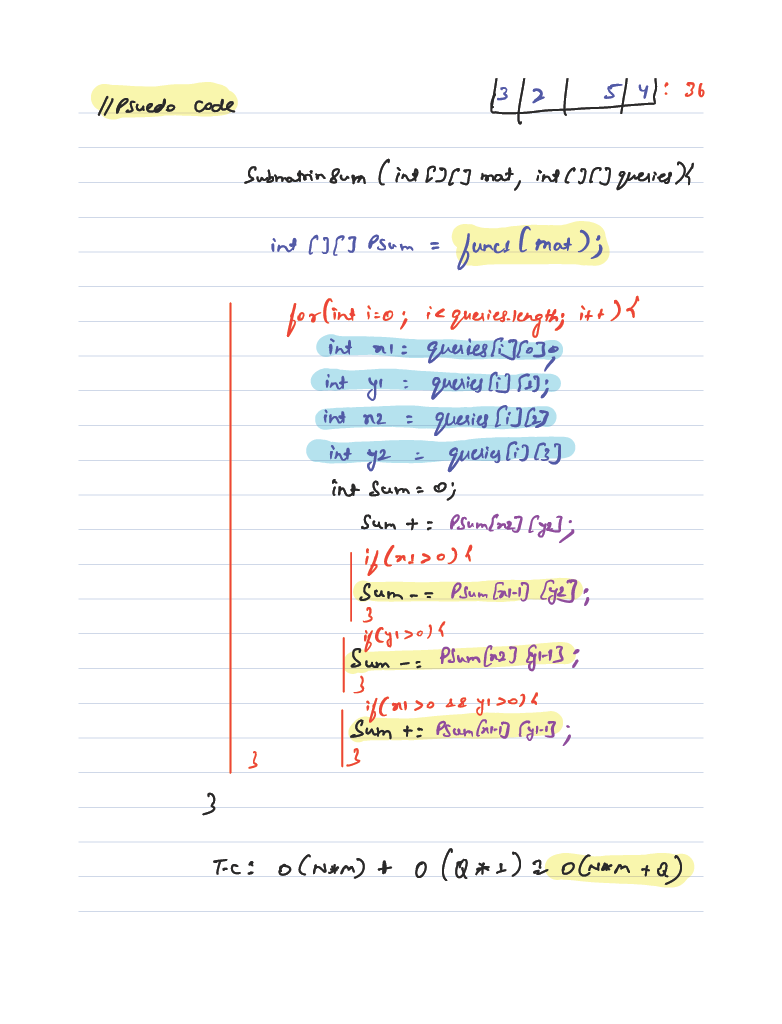 //Psuedo code
3 2 5 4 : 36
Submatrix Sum (int [][] mat, int [][] queries){
int [][] Psum = funcs(mat);
for(int i=0; i< queries.length; i++){
int x1 = queries[i][0];
int y1 = queries[i][1];
int x2 = queries[i][2]
int y2 = queries[i][3]
int Sum = 0;
Sum += PSum[x2][y2];
if(x1>0){
Sum -= PSum[x1-1][y2];
}
if(y1>0){
Sum -= PSum[x2][y1-1];
}
if(x1>0 && y1>0){
Sum += PSum[x1-1][y1-1];
}
}
}
T-C: O(N*M) + O(Q*1) ≈ O(N*M + Q)